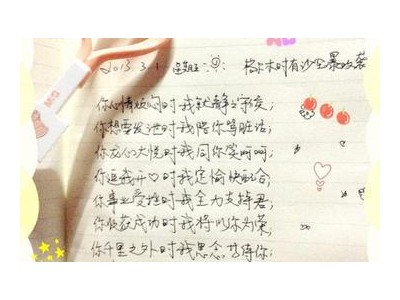 2013.3.1 星期五 格尔木时有沙尘暴攻袭
你心情烦闷时我就静之守候；
你想要发泄时我陪你骂脏话；
你龙心大悦时我同你笑呵呵；
你逗我开♡时我定愉快配合；
你事业受挫时我全力支持君；
你收获成功时我将以你为荣；
你千里之外时我思念苦待你；